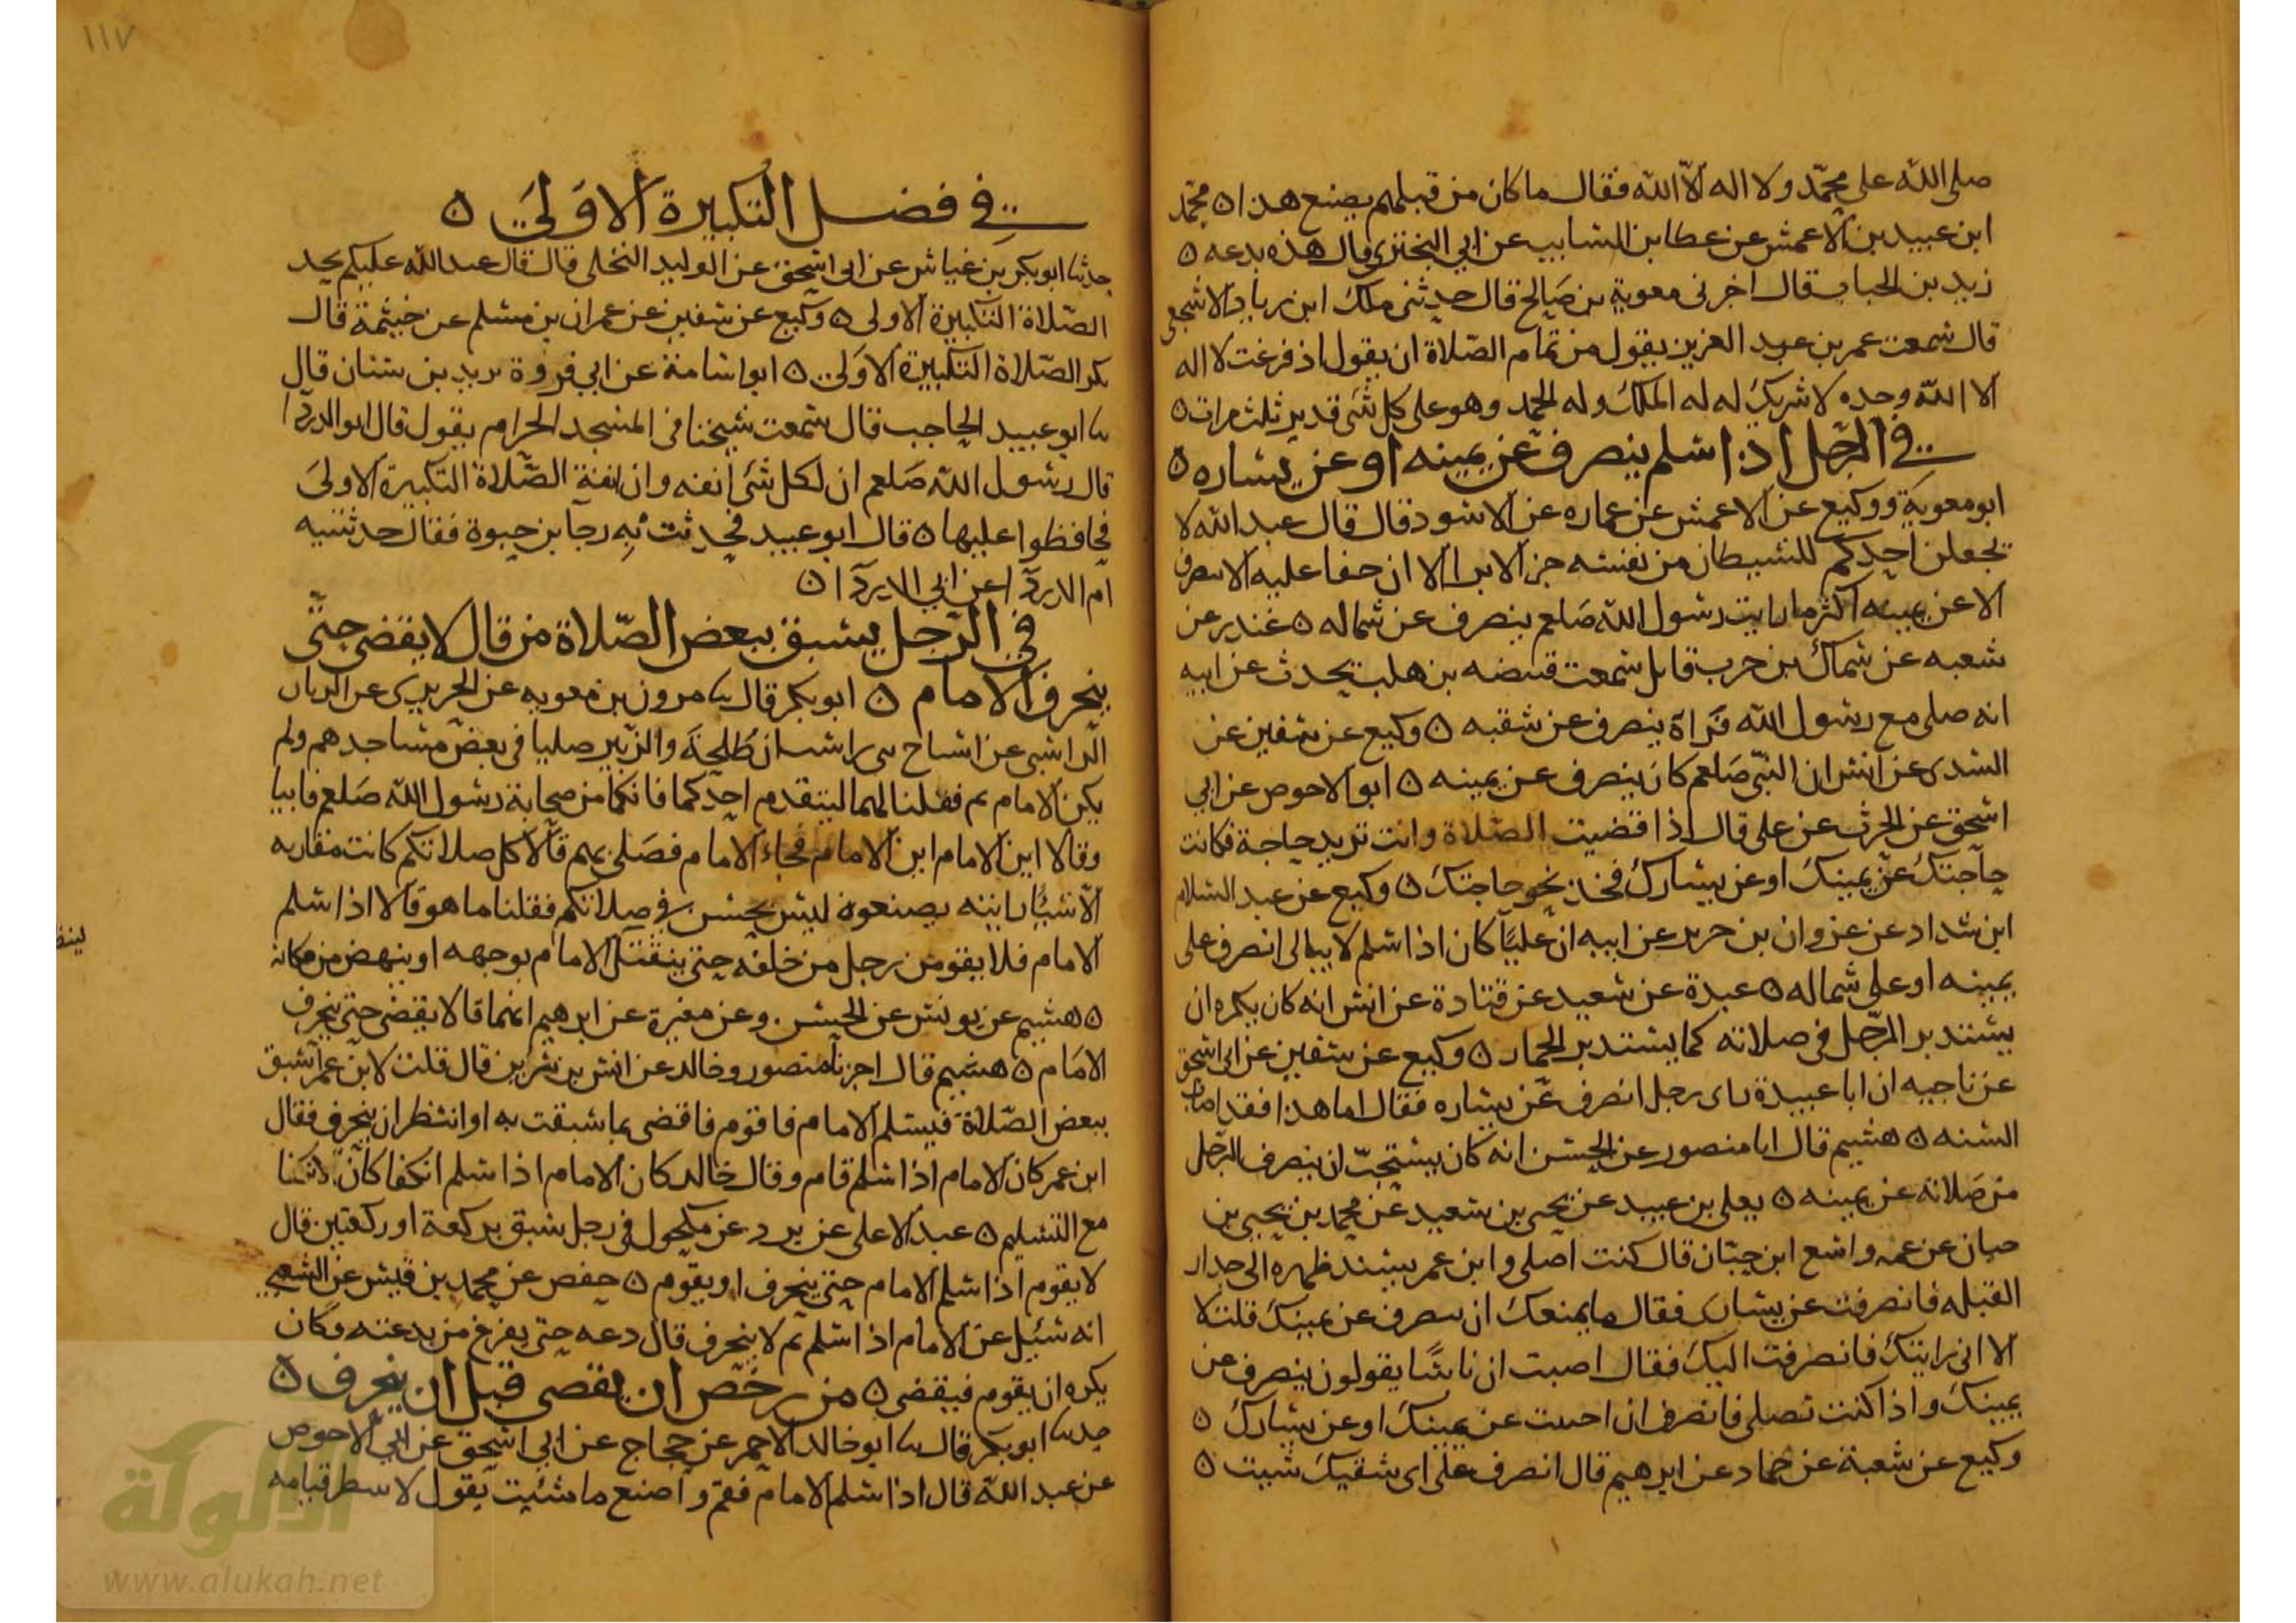 صلى الله على محمد ولا اله الا الله فقال ما كان من قبلهم يصنع هذا ٥ محمد
ابن عبيد بن الاعمش عن عطا بن السايب عن ابي البختري قال هذه بدعه ٥
زيد بن الحباب قال اخرنى معوية بن صالح قال حدثنى ملك ابن زياد الاشجعى
قال سمعت عمر بن عبد العزيز يقول من تمام الصلاة ان يقول اذ فرغت لا اله
الا الله وحده لا شريك له له الملك وله الحمد وهو على كل شى قدير ثلث مرات ٥
في الرجل اذا سلم ينصرف عن يمينه او عن يساره ٥
ابو معوية ووكيع عن الاعمش عن عماره عن الاسود قال قال عبد الله لا
يجعلن احدكم للشيطان من نفسه جزا لا يرا الا ان حقا عليه الا ينصرف
الا عن يمينه اكثر ما رايت رسول الله صلعم ينصرف عن شماله ٥ غندر عن
شعبه عن سماك بن حرب قال سمعت قبيصه بن هلب يحدث عن ابيه
انه صلى مع رسول الله فراه ينصرف عن شقيه ٥ وكيع عن سفين عن
السدى عن انس ان النبي صلعم كان ينصرف عن يمينه ٥ ابو الاحوص عن ابي
اسحق عن الحرث عن على قال اذا قضيت الصلاة وانت تريد حاجة فكانت
حاجتك عن يمينك او عن يسارك فخذ نحو حاجتك ٥ وكيع عن عبد السلام
ابن شداد عن غزوان بن جرير عن ابيه ان عليا كان اذا سلم لا يبالى انصرف على
يمينه او على شماله ٥ عبدة عن سعيد عن قتادة عن انس انه كان يكره ان
يستدير الرجل في صلاته كما يستدير الحمار ٥ وكيع عن سفين عن ابى اسحق
عن ناجيه ان ابا عبيدة راى رجل انصرف عن يساره فقال اما هذا فقد اصاب
السنه ٥ هشيم قال انا منصور عن الحسن انه كان يستحب ان ينصرف الرجل
من صلاته عن يمينه ٥ يعلى بن عبيد عن يحيى بن سعيد عن محمد بن يحيى بن
حبان عن عمه واسع ابن حبان قال كنت اصلى وابن عمر يسند ظهره الى جدار
القبله فانصرفت عن يسارى فقال ما يمنعك ان تنصرف عن يمينك قلت لا
الا انى رايتك فانصرفت اليك فقال اصبت ان ناسا يقولون ينصرف عن
يمينك واذا كنت تصلى فانصرف ان احببت عن يمينك او عن يسارك ٥
وكيع عن شعبة عن حماد عن ابرهيم قال انصرف على اى شقيك شيت ٥
١١٧
في فضل التكبيرة الاولى ٥
حدثنا ابو بكر بن عياش عن ابى اسحق عن الوليد البجلى قال قال عبد الله عليكم بحد
الصلاة التكبيرة الاولى ٥ وكيع عن سفين عن عمران بن مسلم عن خيثمة قال
بكر الصلاة التكبيرة الاولى ٥ ابو اسامة عن ابي فروة يزيد بن سنان قال
نا ابو عبيد الحاجب قال سمعت شيخنا في المسجد الحرام يقول قال ابو الدردا
قال رسول الله صلعم ان لكل شى انفه وان انفة الصلاة التكبيرة الاولى
فحافظوا عليها ٥ قال ابو عبيد فحدثت به رجا بن حيوة فقال حدثتنيه
ام الدردا عن ابي الدردا ٥
في الرجل يسبق ببعض الصلاة من قال لا يقضى حتى
ينحرف الامام ٥ ابو بكر قال نا مرون بن معويه عن الجريري عن الريان
الراسبى عن اشياخ بنى راسب ان طلحة والزبير صليا في بعض مساجدهم ولم
يكن الامام ثم فقلنا لهما ليتقدم احدكما فانكما من صحابة رسول الله صلعم فابيا
وقالا اين الامام اين الامام فجاء الامام فصلى بهم قالا كل صلاتكم كانت مقاربه
الا شيا رايته يصنعونه ليس بحسن في صلاتكم فقلنا ما هو قالا اذا سلم
الامام فلا يقومن رجل من خلفه حتى ينفتل الامام بوجهه او ينهض من مكانه
٥ هشيم عن يونس عن الحسن وعن مغيرة عن ابرهيم انهما قالا لا يقضى حتى ينحرف
الامام ٥ هشيم قال اخبرنا منصور وخالد عن انس بن سيرين قال قلت لابن عمر اسبق
ببعض الصلاة فيسلم الامام فاقوم فاقضى بما سبقت به او انتظر ان ينحرف فقال
ابن عمر كان الامام اذا سلم قام وقال خالد كان الامام اذا سلم انكفا كان
مع التسليم ٥ عبد الاعلى عن برد عن مكحول في رجل سبق بركعة او ركعتين قال
لا يقوم اذا سلم الامام حتى ينحرف او يقوم ٥ حفص عن محمد بن قيس عن الشعبي
انه سئل عن الامام اذا سلم ثم لا ينحرف قال دعه حتى يفرغ من بدعته وكان
يكره ان يقوم فيقضى ٥ من رخص ان يقضى قبل ان ينحرف ٥
حدثنا ابو بكر قال نا ابو خالد الاحمر عن حجاج عن ابي اسحق عن ابي الاحوص
عن عبد الله قال اذا سلم الامام فقم واصنع ما شئت يقول لا تنتظر قيامه
الألوكة
www.alukah.net